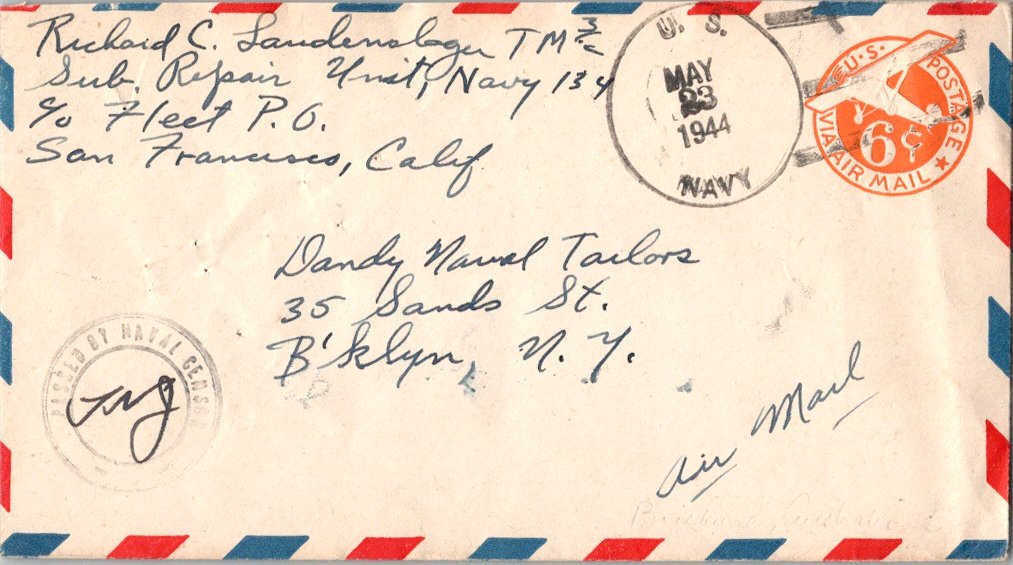 Richard C. Laudenslager TM 3/c
Sub. Repair Unit, Navy 134
c/o Fleet P.O.
San Francisco, Calif.
U. S.
MAY
23
1944
NAVY
U.S. POSTAGE
6¢
VIA AIR MAIL
Dandy Naval Tailors
35 Sands St.
B'klyn, N. Y.
PASSED BY NAVAL CENSOR
Air Mail
Brisbane, Australia